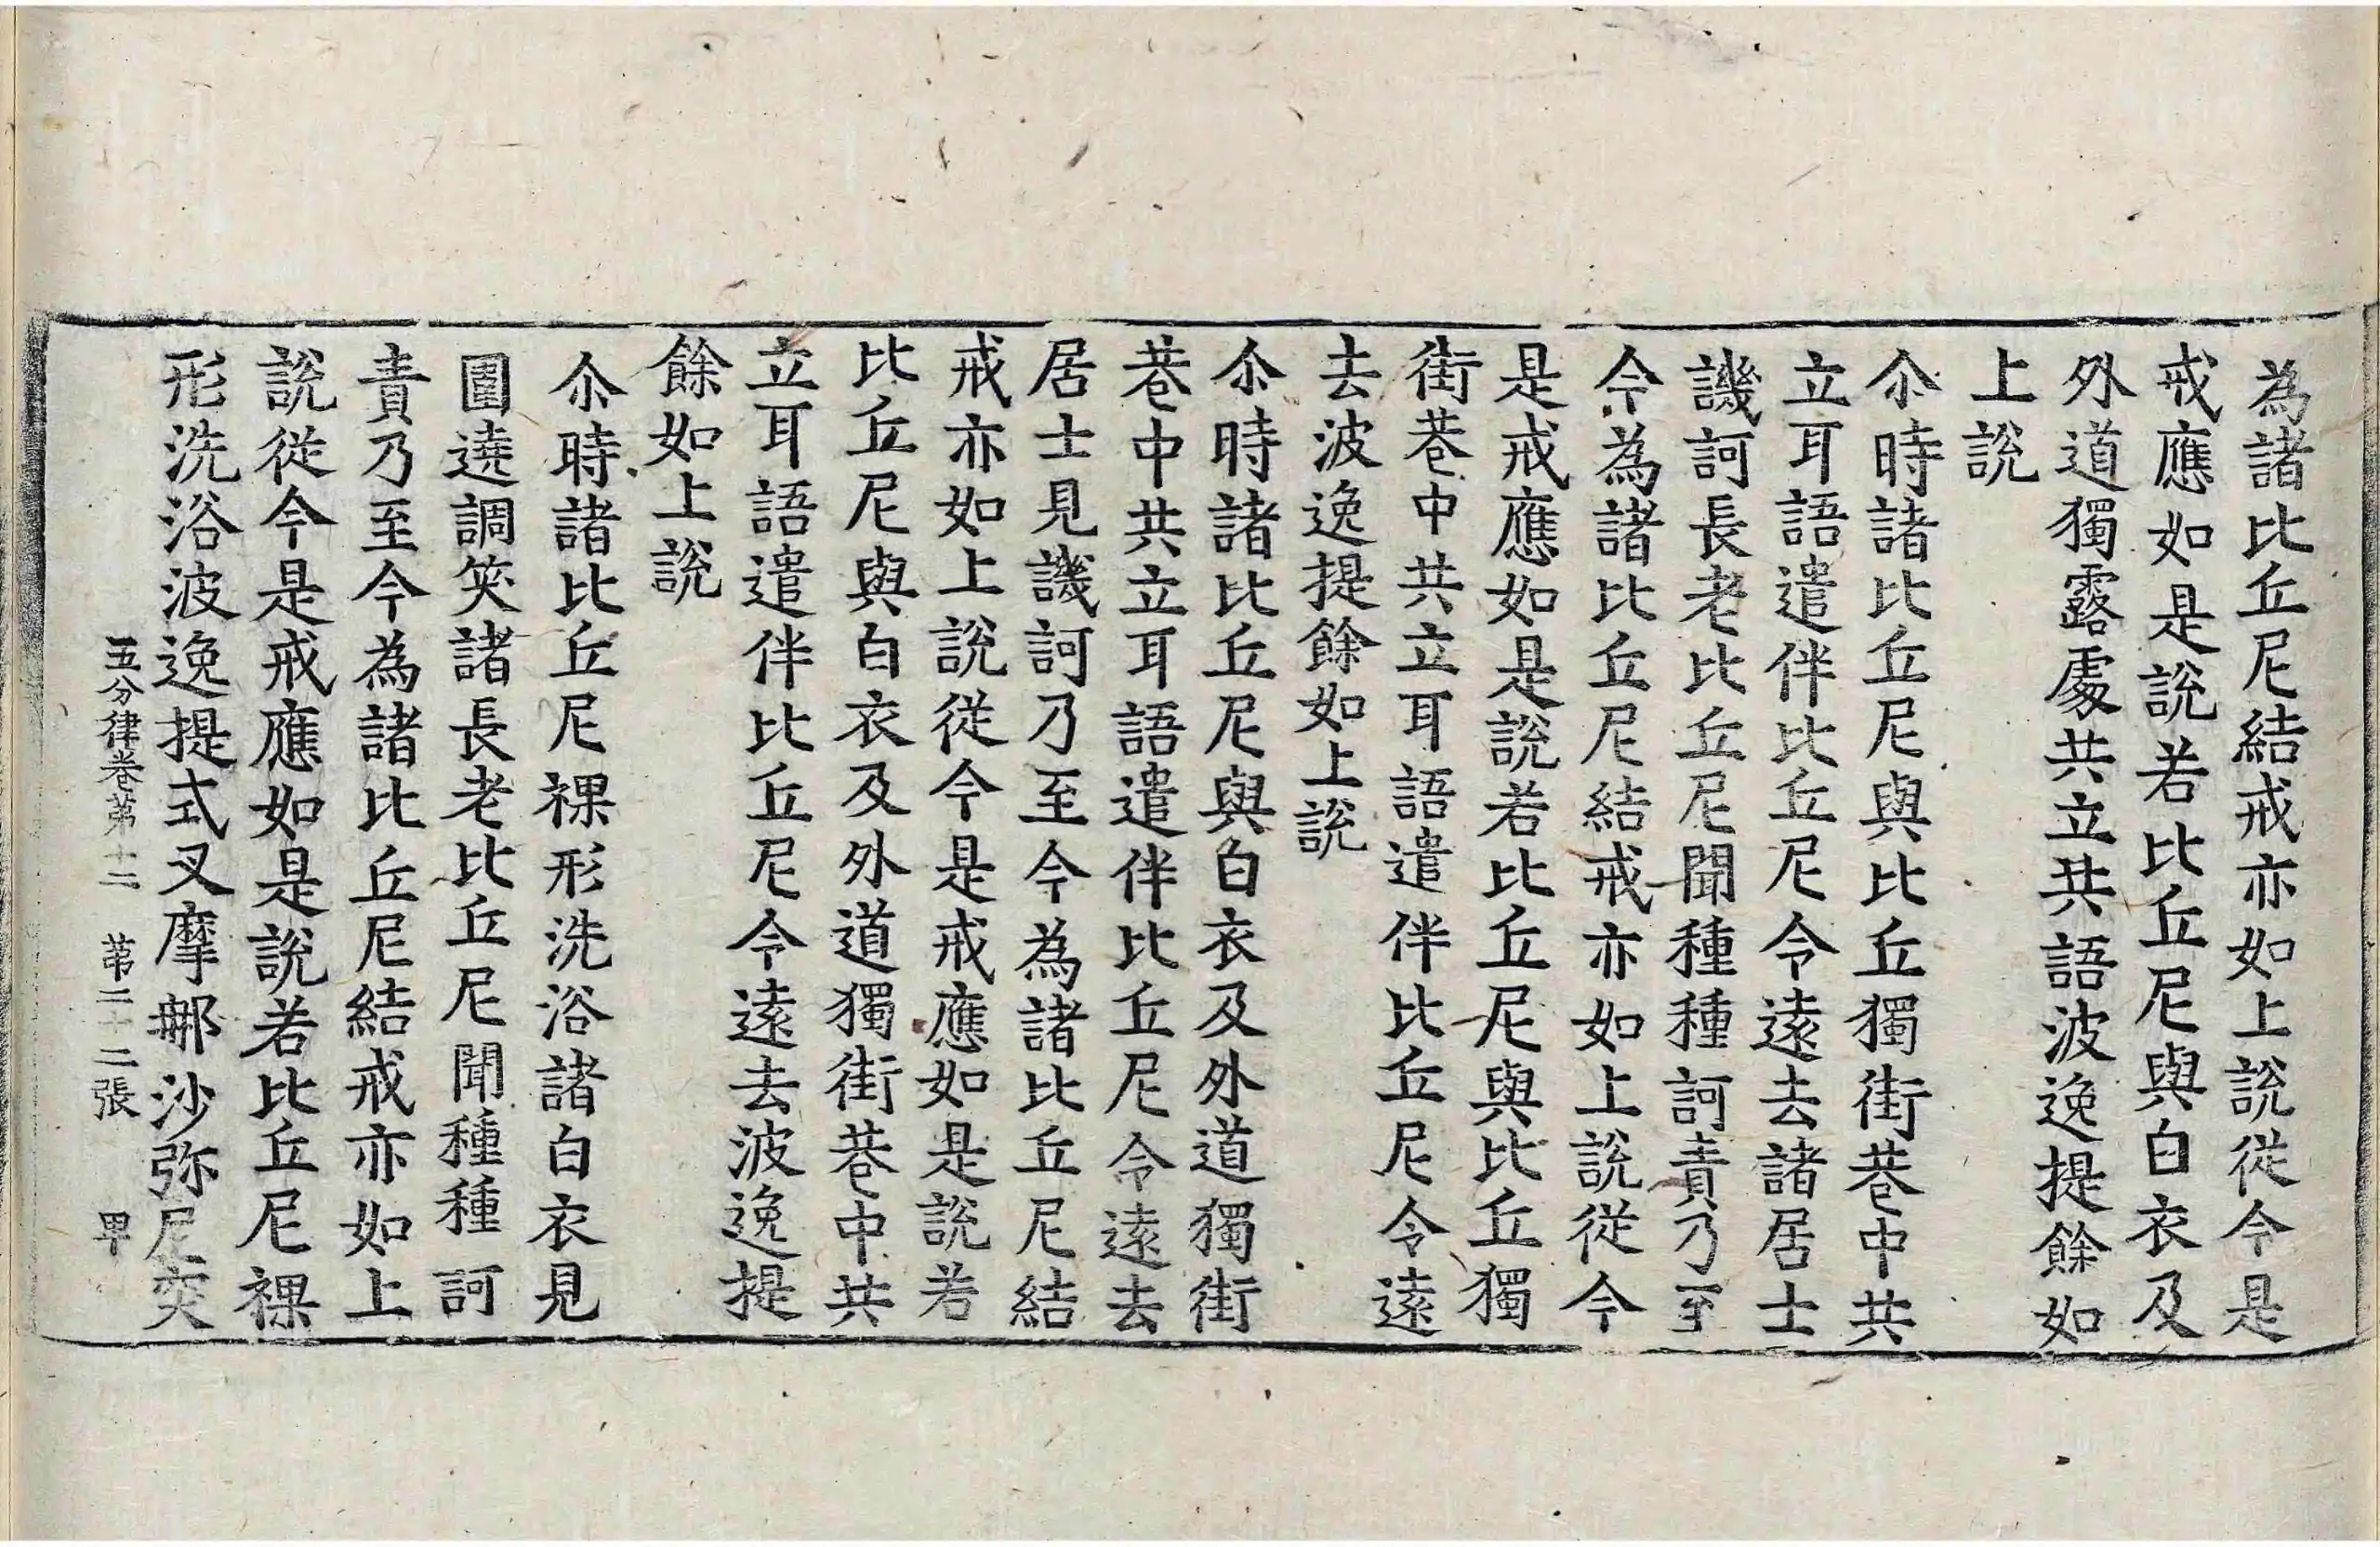 為諸比丘尼結戒亦如上說從今是
戒應如是說若比丘尼與白衣及
外道獨露處共立共語波逸提餘如
上說
尒時諸比丘尼與比丘獨街巷中共
立耳語遣伴比丘尼令遠去諸居士
譏訶長老比丘尼聞種種訶責乃至
今為諸比丘尼結戒亦如上說從今
是戒應如是說若比丘尼與比丘獨
街巷中共立耳語遣伴比丘尼令遠
去波逸提餘如上說
尒時諸比丘尼與白衣及外道獨街
巷中共立耳語遣伴比丘尼令遠去
居士見譏訶乃至今為諸比丘尼結
戒亦如上說從今是戒應如是說若
比丘尼與白衣及外道獨街巷中共
立耳語遣伴比丘尼令遠去波逸提
餘如上說
尒時諸比丘尼裸形洗浴諸白衣見
圍遶調笑諸長老比丘尼聞種種訶
責乃至今為諸比丘尼結戒亦如上
說從今是戒應如是說若比丘尼裸
形洗浴波逸提式叉摩那沙弥尼突
五分律卷第十二 第二十二張 甲